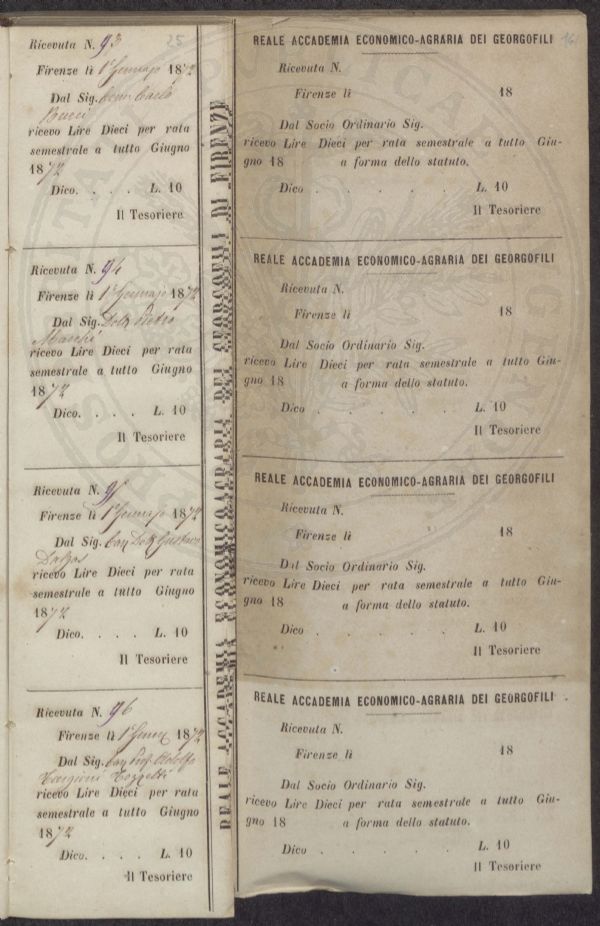 Ricevuta N. 93
25
Firenze lì 1° Gennajo 1872
Dal Sig. Carlo
ricevo Lire Dieci per rata
semestrale a tutto Giugno
1872
Dico. . . . L. 10
Il Tesoriere
Ricevuta N. 94
Firenze lì 1° Gennajo 1872
Dal Sig. Dott. Pietro
ricevo Lire Dieci per rata
semestrale a tutto Giugno
1872
Dico. . . . L. 10
Il Tesoriere
Ricevuta N. 95
Firenze lì 1° Gennajo 1872
Dal Sig. Cav. Dott. Gustavo
ricevo Lire Dieci per rata
semestrale a tutto Giugno
1872
Dico. . . . L. 10
Il Tesoriere
Ricevuta N. 96
Firenze lì 1° 1872
Dal Sig. Cav. Prof. Adolfo
Targioni Tozzetti
ricevo Lire Dieci per rata
semestrale a tutto Giugno
1872
Dico. . . . L. 10
Il Tesoriere
REALE ACCADEMIA ECONOMICO-AGRARIA DEI GEORGOFILI DI FIRENZE
REALE ACCADEMIA ECONOMICO-AGRARIA DEI GEORGOFILI
Ricevuta N.
Firenze lì 18
Dal Socio Ordinario Sig.
ricevo Lire Dieci per rata semestrale a tutto Giu-
gno 18 a forma dello statuto.
Dico . . . . L. 10
Il Tesoriere
REALE ACCADEMIA ECONOMICO-AGRARIA DEI GEORGOFILI
Ricevuta N.
Firenze lì 18
Dal Socio Ordinario Sig.
ricevo Lire Dieci per rata semestrale a tutto Giu-
gno 18 a forma dello statuto.
Dico . . . . L. 10
Il Tesoriere
REALE ACCADEMIA ECONOMICO-AGRARIA DEI GEORGOFILI
Ricevuta N.
Firenze lì 18
Dal Socio Ordinario Sig.
ricevo Lire Dieci per rata semestrale a tutto Giu-
gno 18 a forma dello statuto.
Dico . . . . L. 10
Il Tesoriere
REALE ACCADEMIA ECONOMICO-AGRARIA DEI GEORGOFILI
Ricevuta N.
Firenze lì 18
Dal Socio Ordinario Sig.
ricevo Lire Dieci per rata semestrale a tutto Giu-
gno 18 a forma dello statuto.
Dico . . . . L. 10
Il Tesoriere